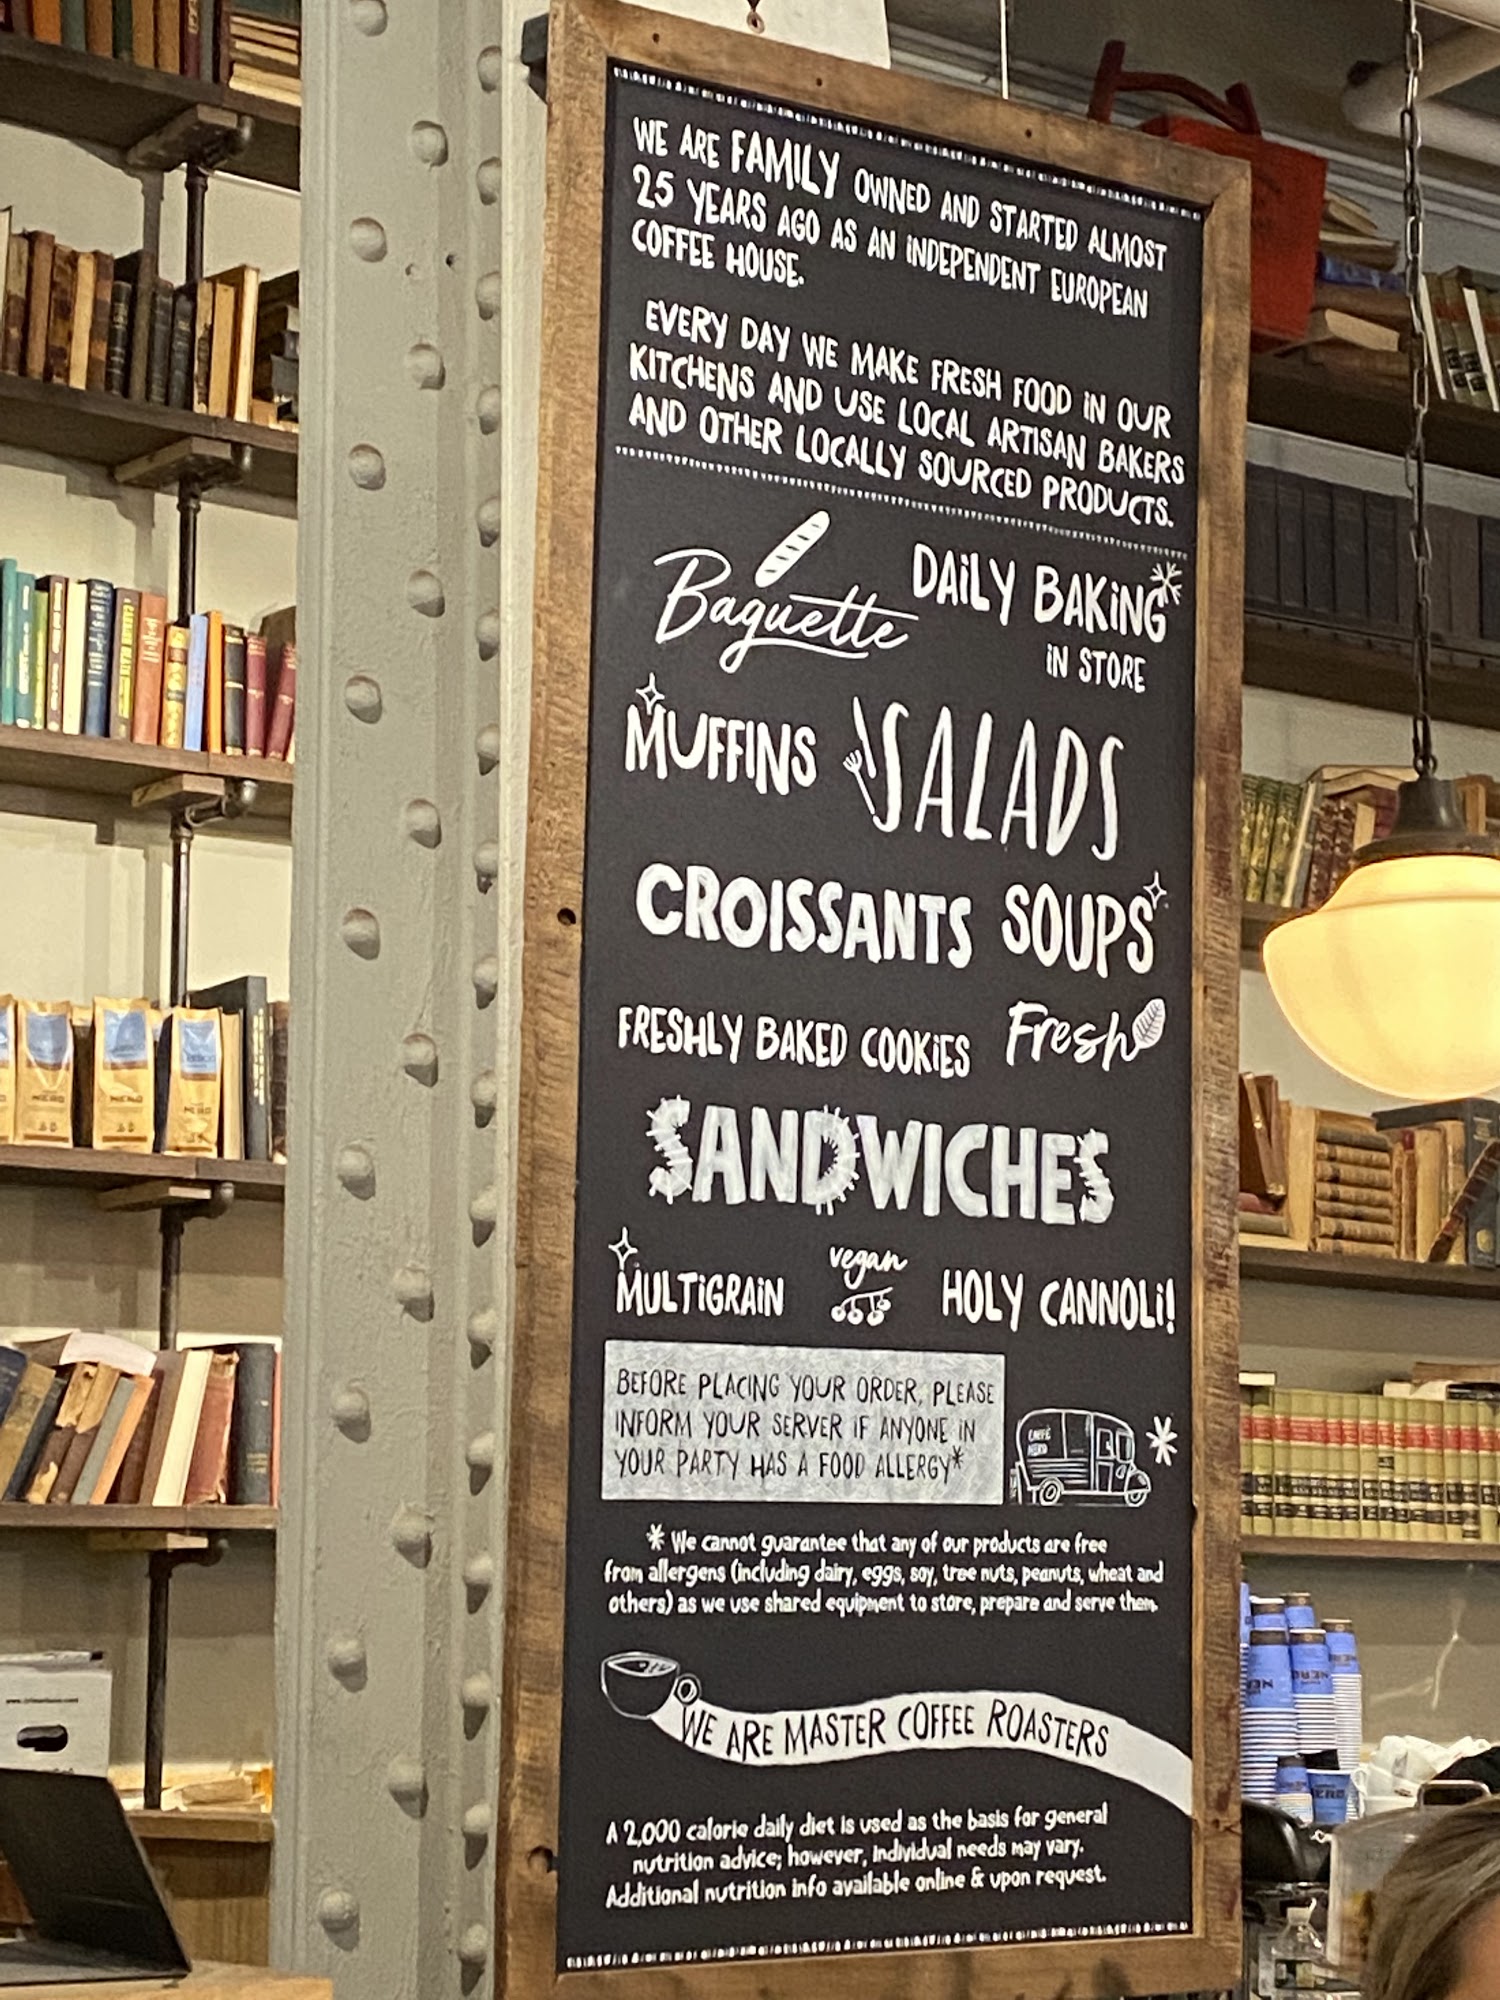 WE ARE FAMILY OWNED AND STARTED ALMOST
25 YEARS AGO AS AN INDEPENDENT EUROPEAN
COFFEE HOUSE.
EVERY DAY WE MAKE FRESH FOOD IN OUR
KITCHENS AND USE LOCAL ARTISAN BAKERS
AND OTHER LOCALLY SOURCED PRODUCTS.
Baguette DAILY BAKING*
IN STORE
MUFFINS SALADS
CROISSANTS SOUPS
FRESHLY BAKED COOKIES Fresh
SANDWICHES
MULTIGRAIN vegan HOLY CANNOLI!
BEFORE PLACING YOUR ORDER, PLEASE
INFORM YOUR SERVER IF ANYONE IN
YOUR PARTY HAS A FOOD ALLERGY*
CAFFÈ
NERO
* We cannot guarantee that any of our products are free
from allergens (including dairy, eggs, soy, tree nuts, peanuts, wheat and
others) as we use shared equipment to store, prepare and serve them.
WE ARE MASTER COFFEE ROASTERS
A 2,000 calorie daily diet is used as the basis for general
nutrition advice; however, individual needs may vary.
Additional nutrition info available online & upon request.
NERO
NERO
NERO
NERO